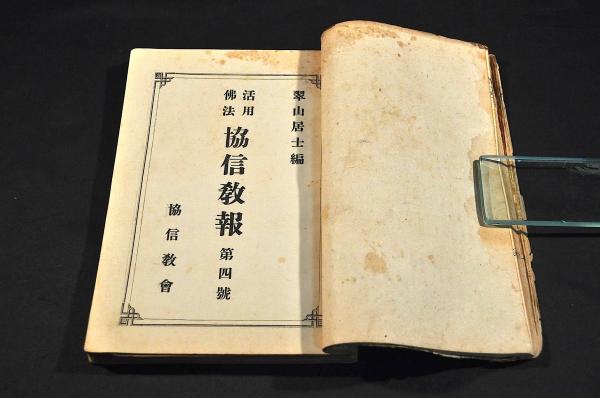 翠山居士編
活用
佛法
協信敎報
第四號
協信敎會